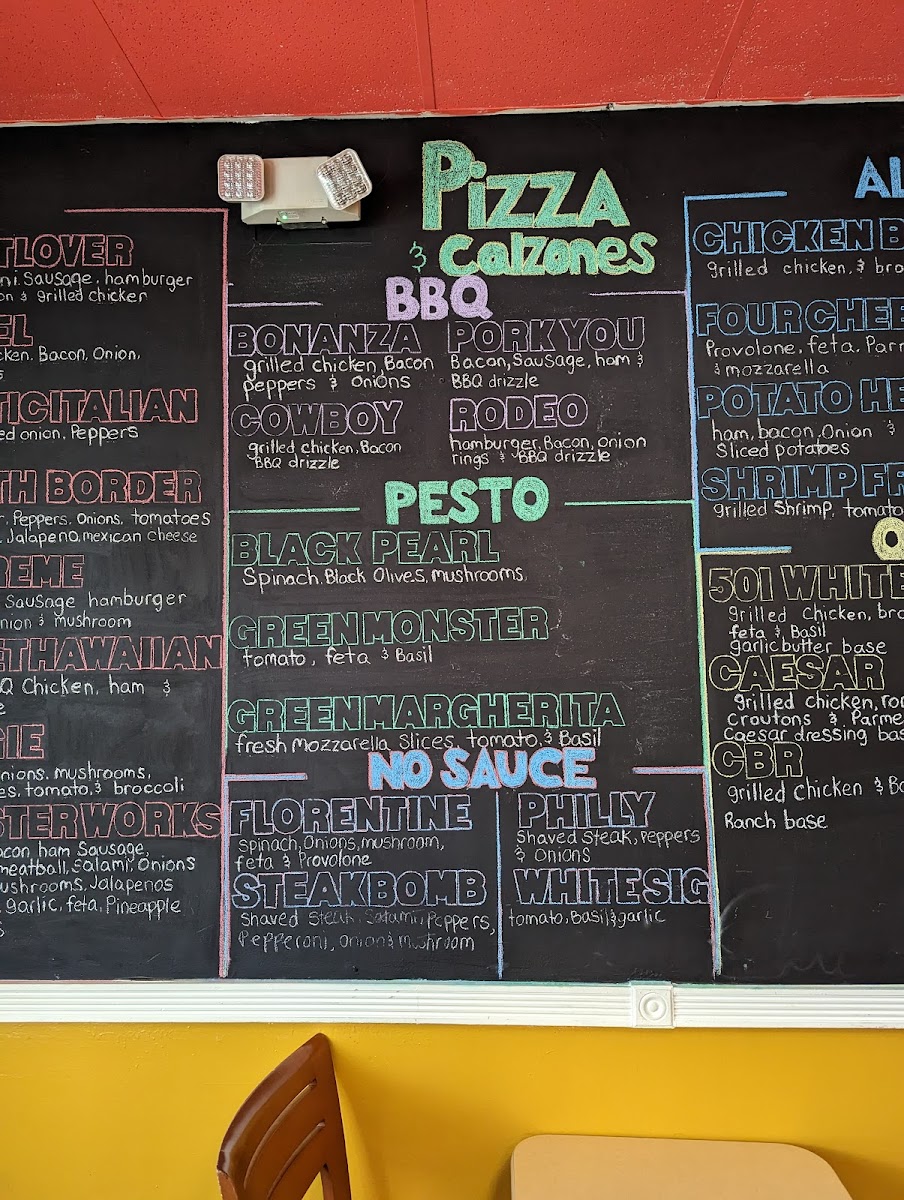 Pizza
& Calzones
TLOVER
ni. Sausage. hamburger
on & grilled chicken
EL
cken. Bacon, Onion,
s
TIC ITALIAN
ed onion, Peppers
TH BORDER
r. Peppers, Onions, tomatoes
Jalapeno, mexican cheese
REME
Sausage hamburger
nion & mushroom
ET HAWAIIAN
Q Chicken, ham &
e
GIE
nions, mushrooms,
es, tomato, & broccoli
STER WORKS
acon ham Sausage,
meatball, Salami, Onions
ushrooms, Jalapenos
garlic, feta, Pineapple
s
BBQ
BONANZA
grilled chicken, Bacon
peppers & onions
PORK YOU
Bacon, Sausage, ham &
BBQ drizzle
COWBOY
grilled, chicken, Bacon
BBQ drizzle
RODEO
hamburger, Bacon, onion
rings & BBQ drizzle
PESTO
BLACK PEARL
Spinach, Black Olives, mushrooms
GREEN MONSTER
tomato, feta & Basil
GREEN MARGHERITA
fresh Mozzarella Slices, tomato, & Basil
NO SAUCE
FLORENTINE
Spinach, Onions, mushroom,
feta & Provolone
STEAK BOMB
Shaved Steak, Salami, Peppers,
Pepperoni, onion & mushroom
PHILLY
Shaved Steak, Peppers
& Onions
WHITE SIG
tomato, Basil & garlic
AL
CHICKEN B
grilled chicken, & bro
FOUR CHEE
Provolone, feta, Parm
& mozzarella
POTATO HE
ham, bacon, Onion &
Sliced potatoes
SHRIMP FR
grilled Shrimp, tomato
O
501 WHITE
grilled Chicken, bro
feta & Basil
garlic butter base
CAESAR
grilled chicken, ro
Croutons & Parme
Caesar dressing bas
CBR
grilled Chicken & Ba
Ranch base